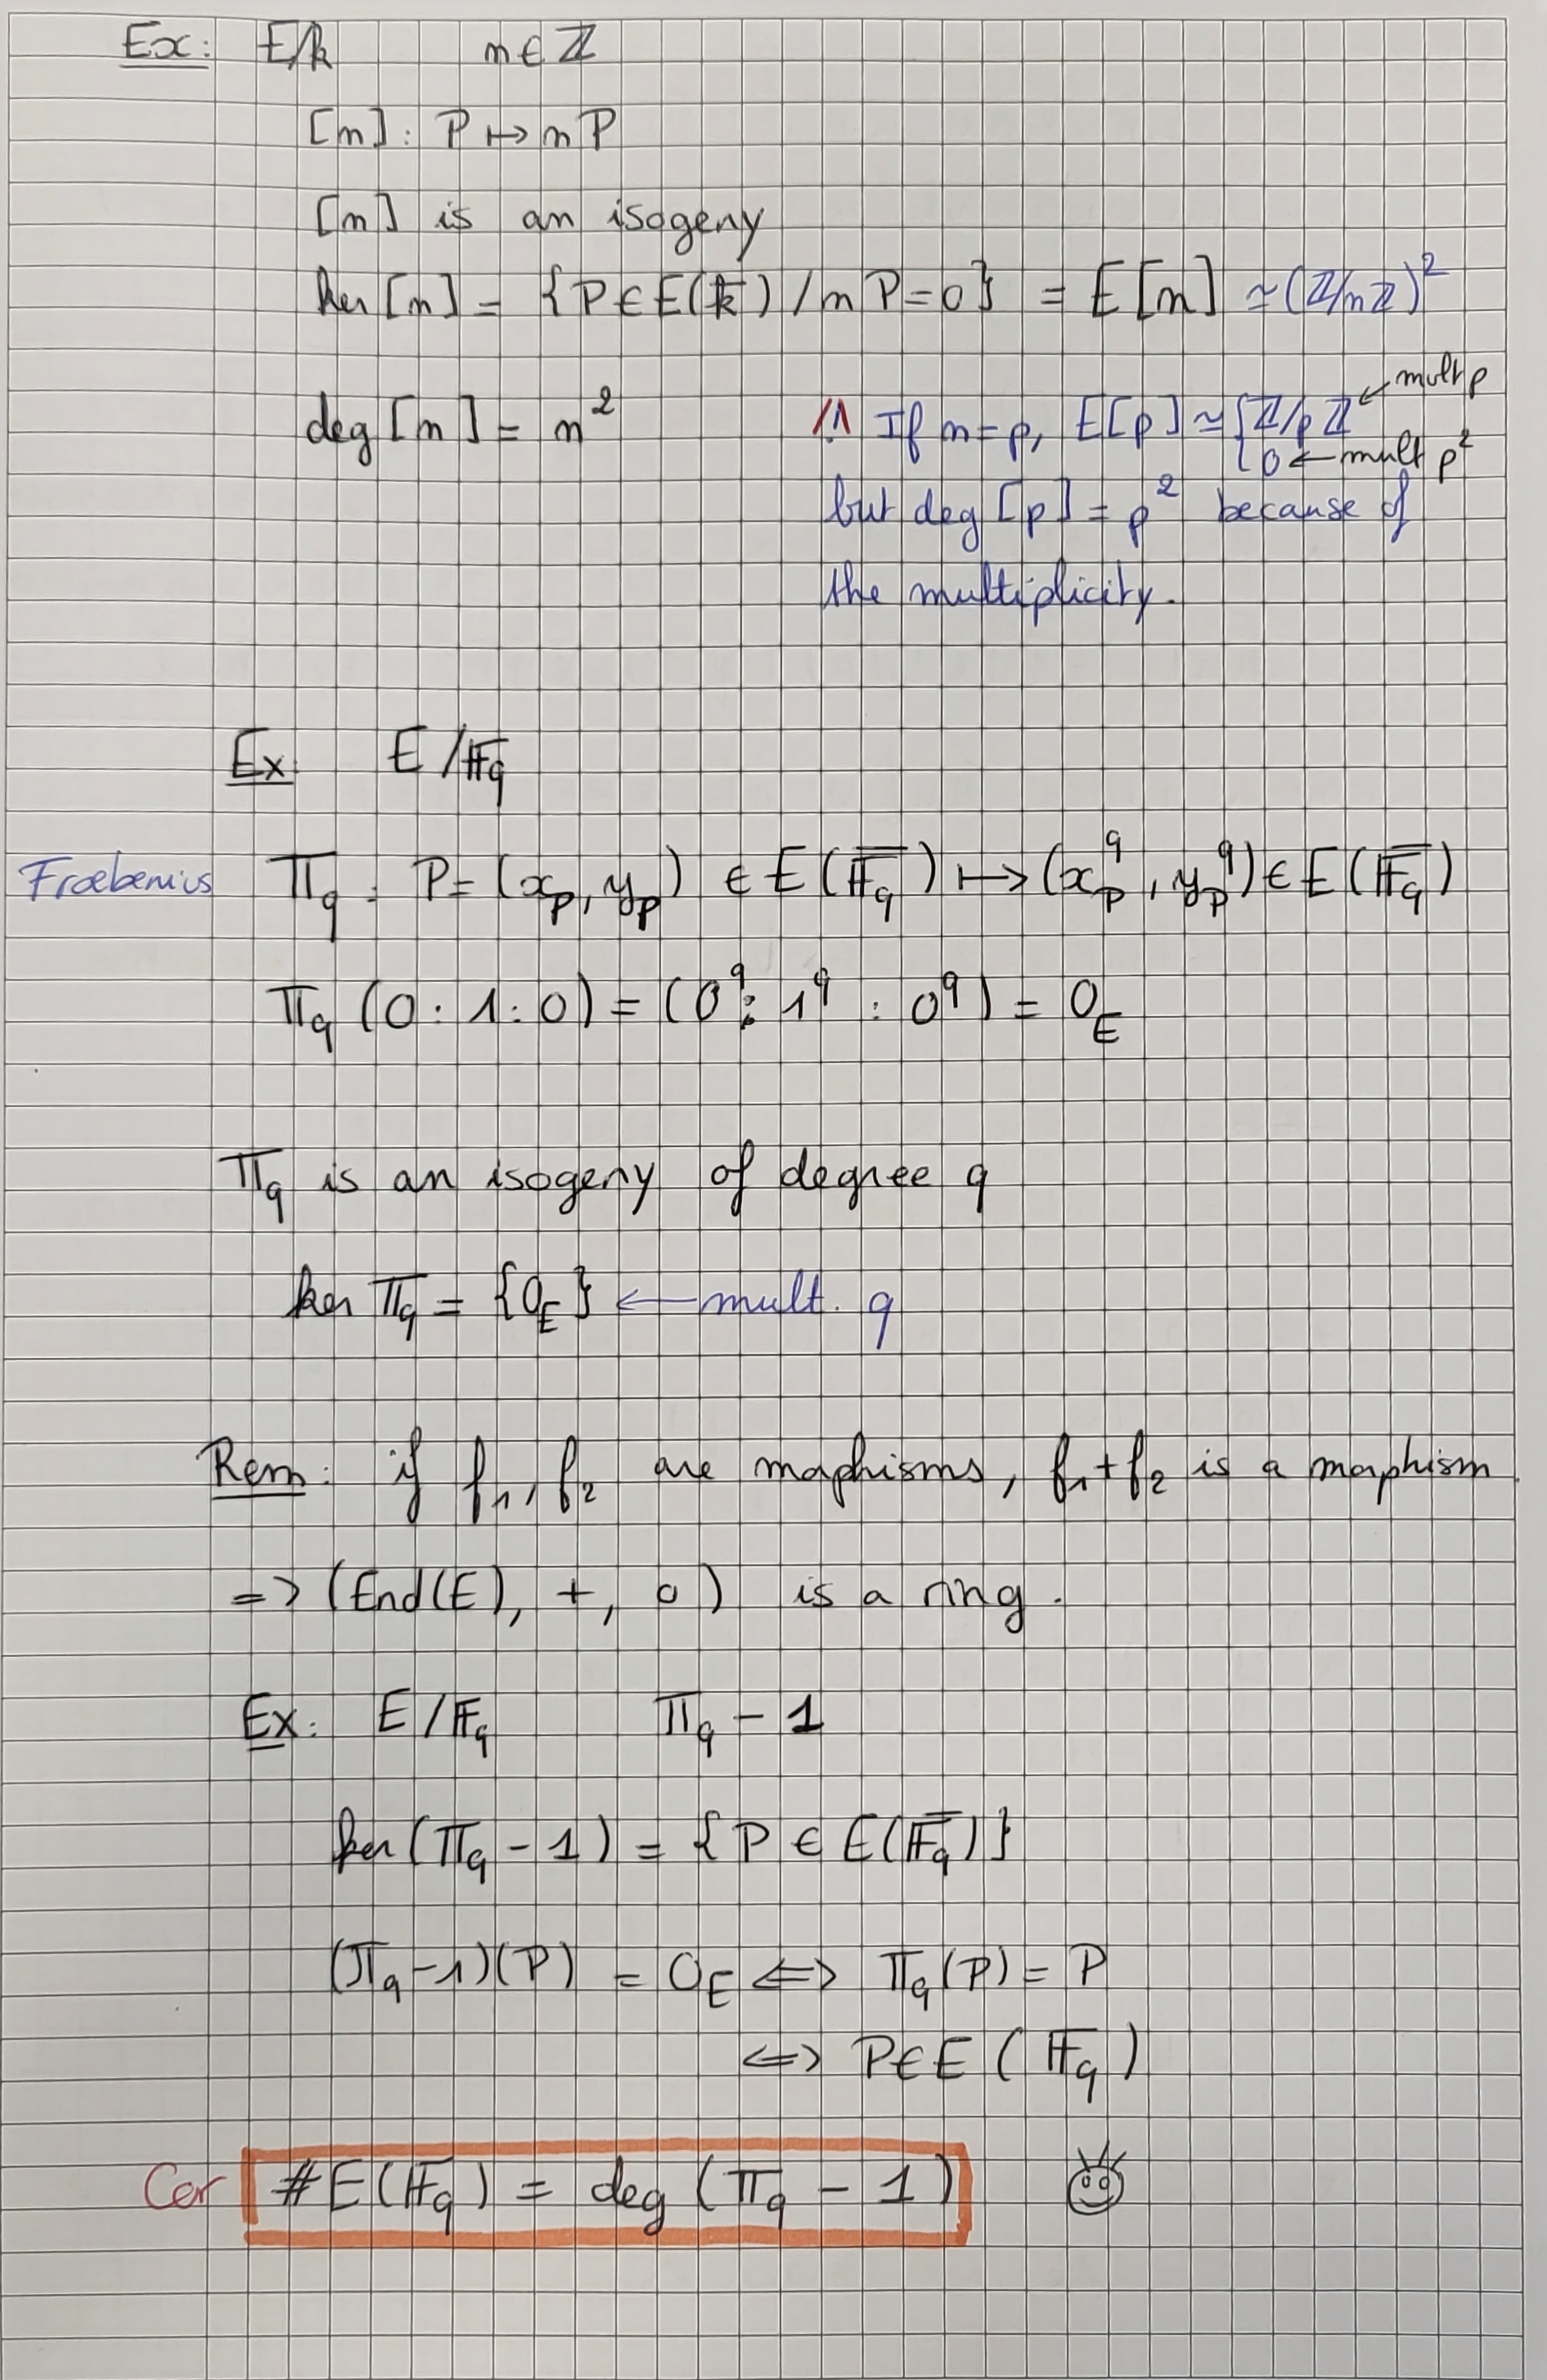 Ex: E/k n ∈ ℤ
[n]: P ↦ nP
[n] is an isogeny
ker [n] = {P ∈ E(k̄) / nP = 0} = E[n] ≃ (ℤ/nℤ)²
deg [n] = n²
/!\ If n=p, E[p] ≃ { ℤ/pℤ ← mult p
0 ← mult p²
but deg [p] = p² because of
the multiplicity.
Ex E/𝔽q
Froebenius πq : P = (x_P, y_P) ∈ E(𝔽̄q) ↦ (x_P^q, y_P^q) ∈ E(𝔽̄q)
πq (0 : 1 : 0) = (0^q : 1^q : 0^q) = 0_E
πq is an isogeny of degree q
ker πq = {0_E} ← mult. q
Rem: if f₁, f₂ are morphisms, f₁+f₂ is a morphism.
=> (End(E), +, ∘) is a ring.
Ex: E/𝔽q πq - 1
ker(πq - 1) = {P ∈ E(𝔽̄q)}
(πq - 1)(P) = 0_E ⟺ πq(P) = P
⟺ P ∈ E(𝔽q)
Cor #E(𝔽q) = deg (πq - 1)